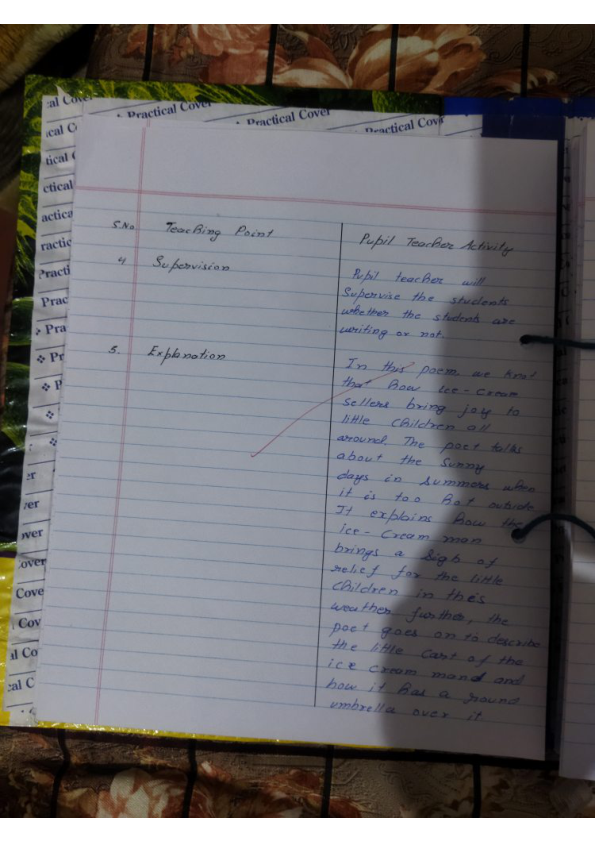 al Cover
Practical Cover
Practical Cover
Practical Cov
ical C
tical
ctical
actica
ractic
Practi
Prac
Pra
Pr
P
er
ver
over
Cove
Cov
al Co
cal C
S.No. Teaching Point Pupil Teacher Activity
4. Supervision
Pupil teacher will
Supervise the students
whether the students are
writing or not.
5. Explanation
In this poem, we know
that how ice-cream
sellers bring joy to
little children all
around. The poet talks
about the sunny
days in summers when
it is too hot outside.
It explains how the
ice-cream man
brings a sigh of
relief for the little
children in this
weather further, the
poet goes on to describe
the little cart of the
ice cream man and
how it has a round
umbrella over it